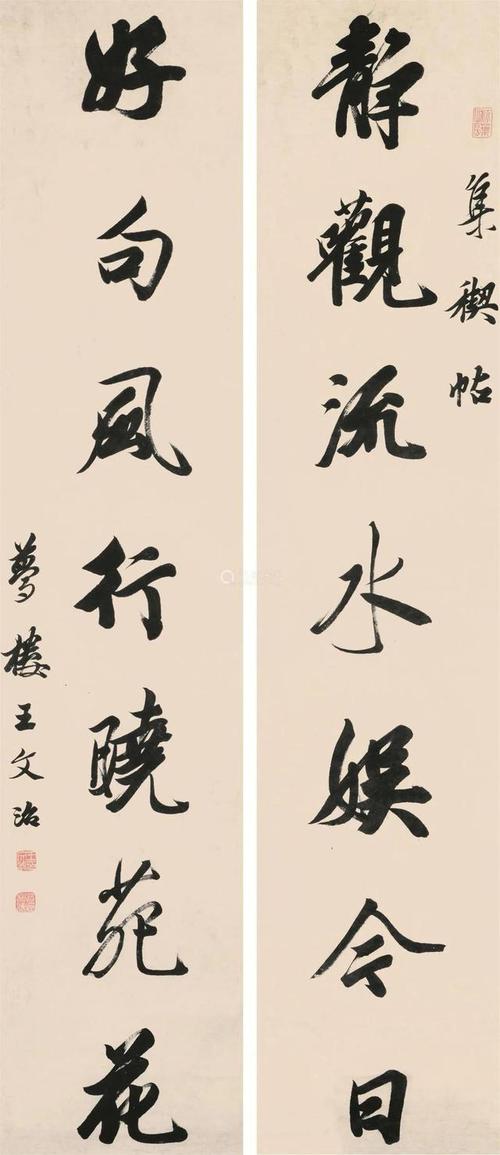 集禊帖
靜觀流水娛今日
好句風行曉苑花
夢樓王文治